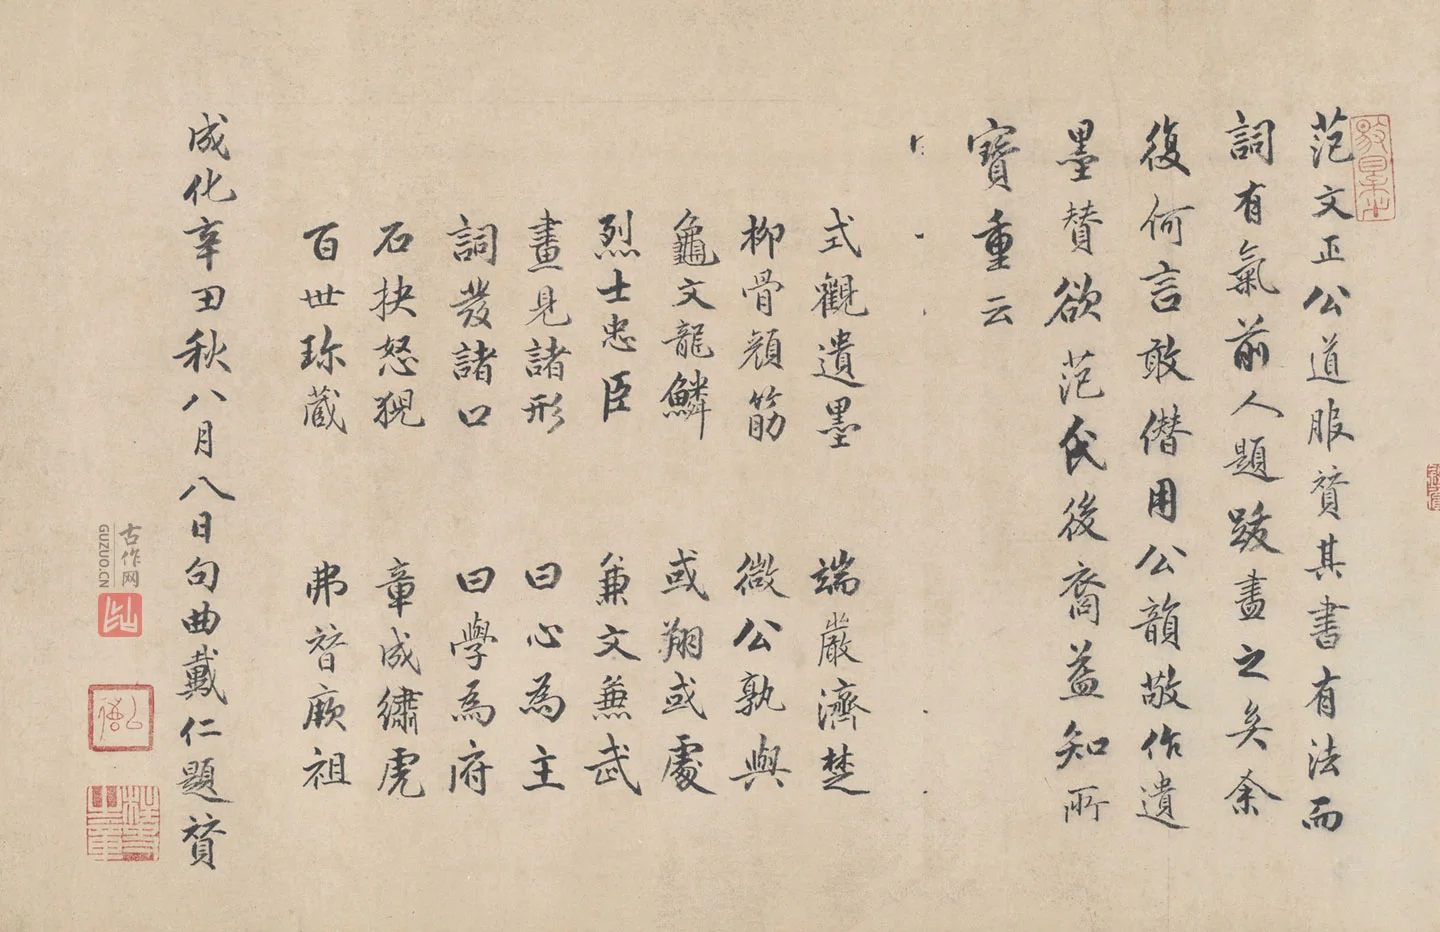 范文正公道服贊其書有法而
詞有氣前人題跋盡之矣余
復何言敢僭用公韻敬作遺
墨贊欲范氏後裔益知所
寶重云
式觀遺墨 端嚴濟楚
柳骨顏筋 微公孰與
龜文龍鱗 或翔或處
烈士忠臣 兼文兼武
畫見諸形 曰心為主
詞發諸口 曰學為府
石抉怒猊 章成繡虎
百世珎藏 弗替厥祖
成化辛丑秋八月八日句曲戴仁題贊
古作网
GUZUO.CN